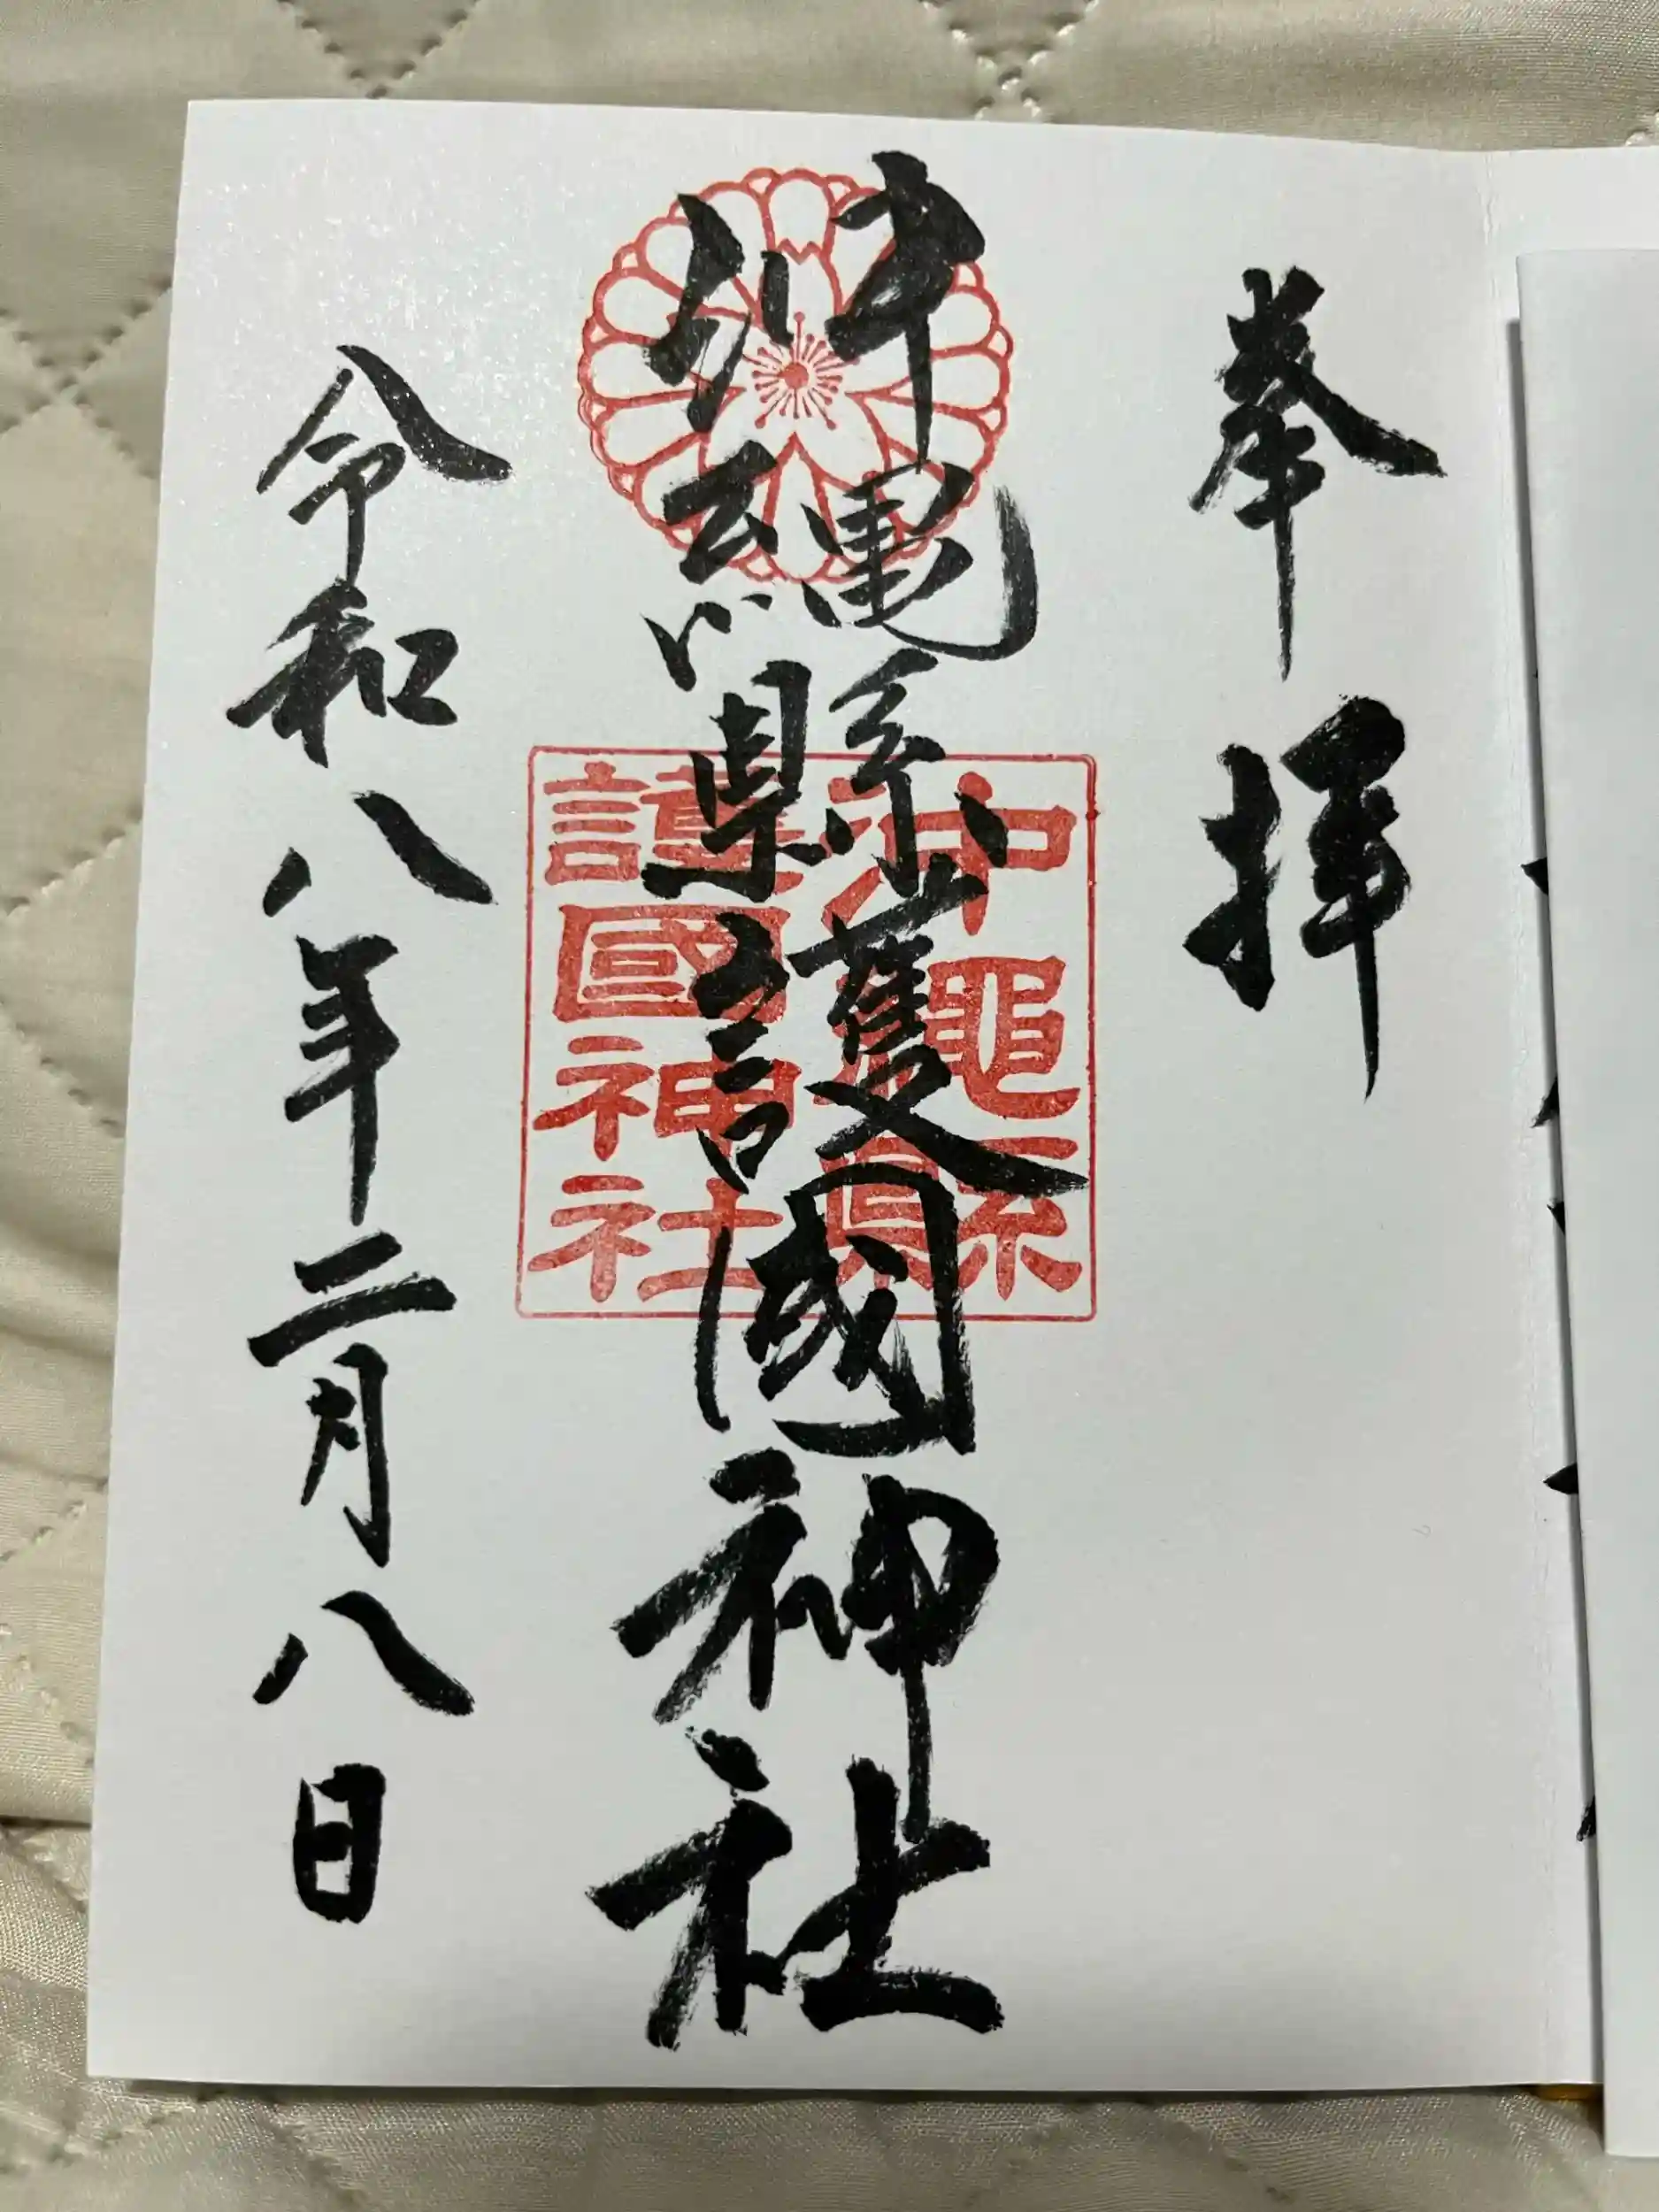 奉拝
沖縄縣護國神社
沖縄縣
護國神社
令和八年二月八日